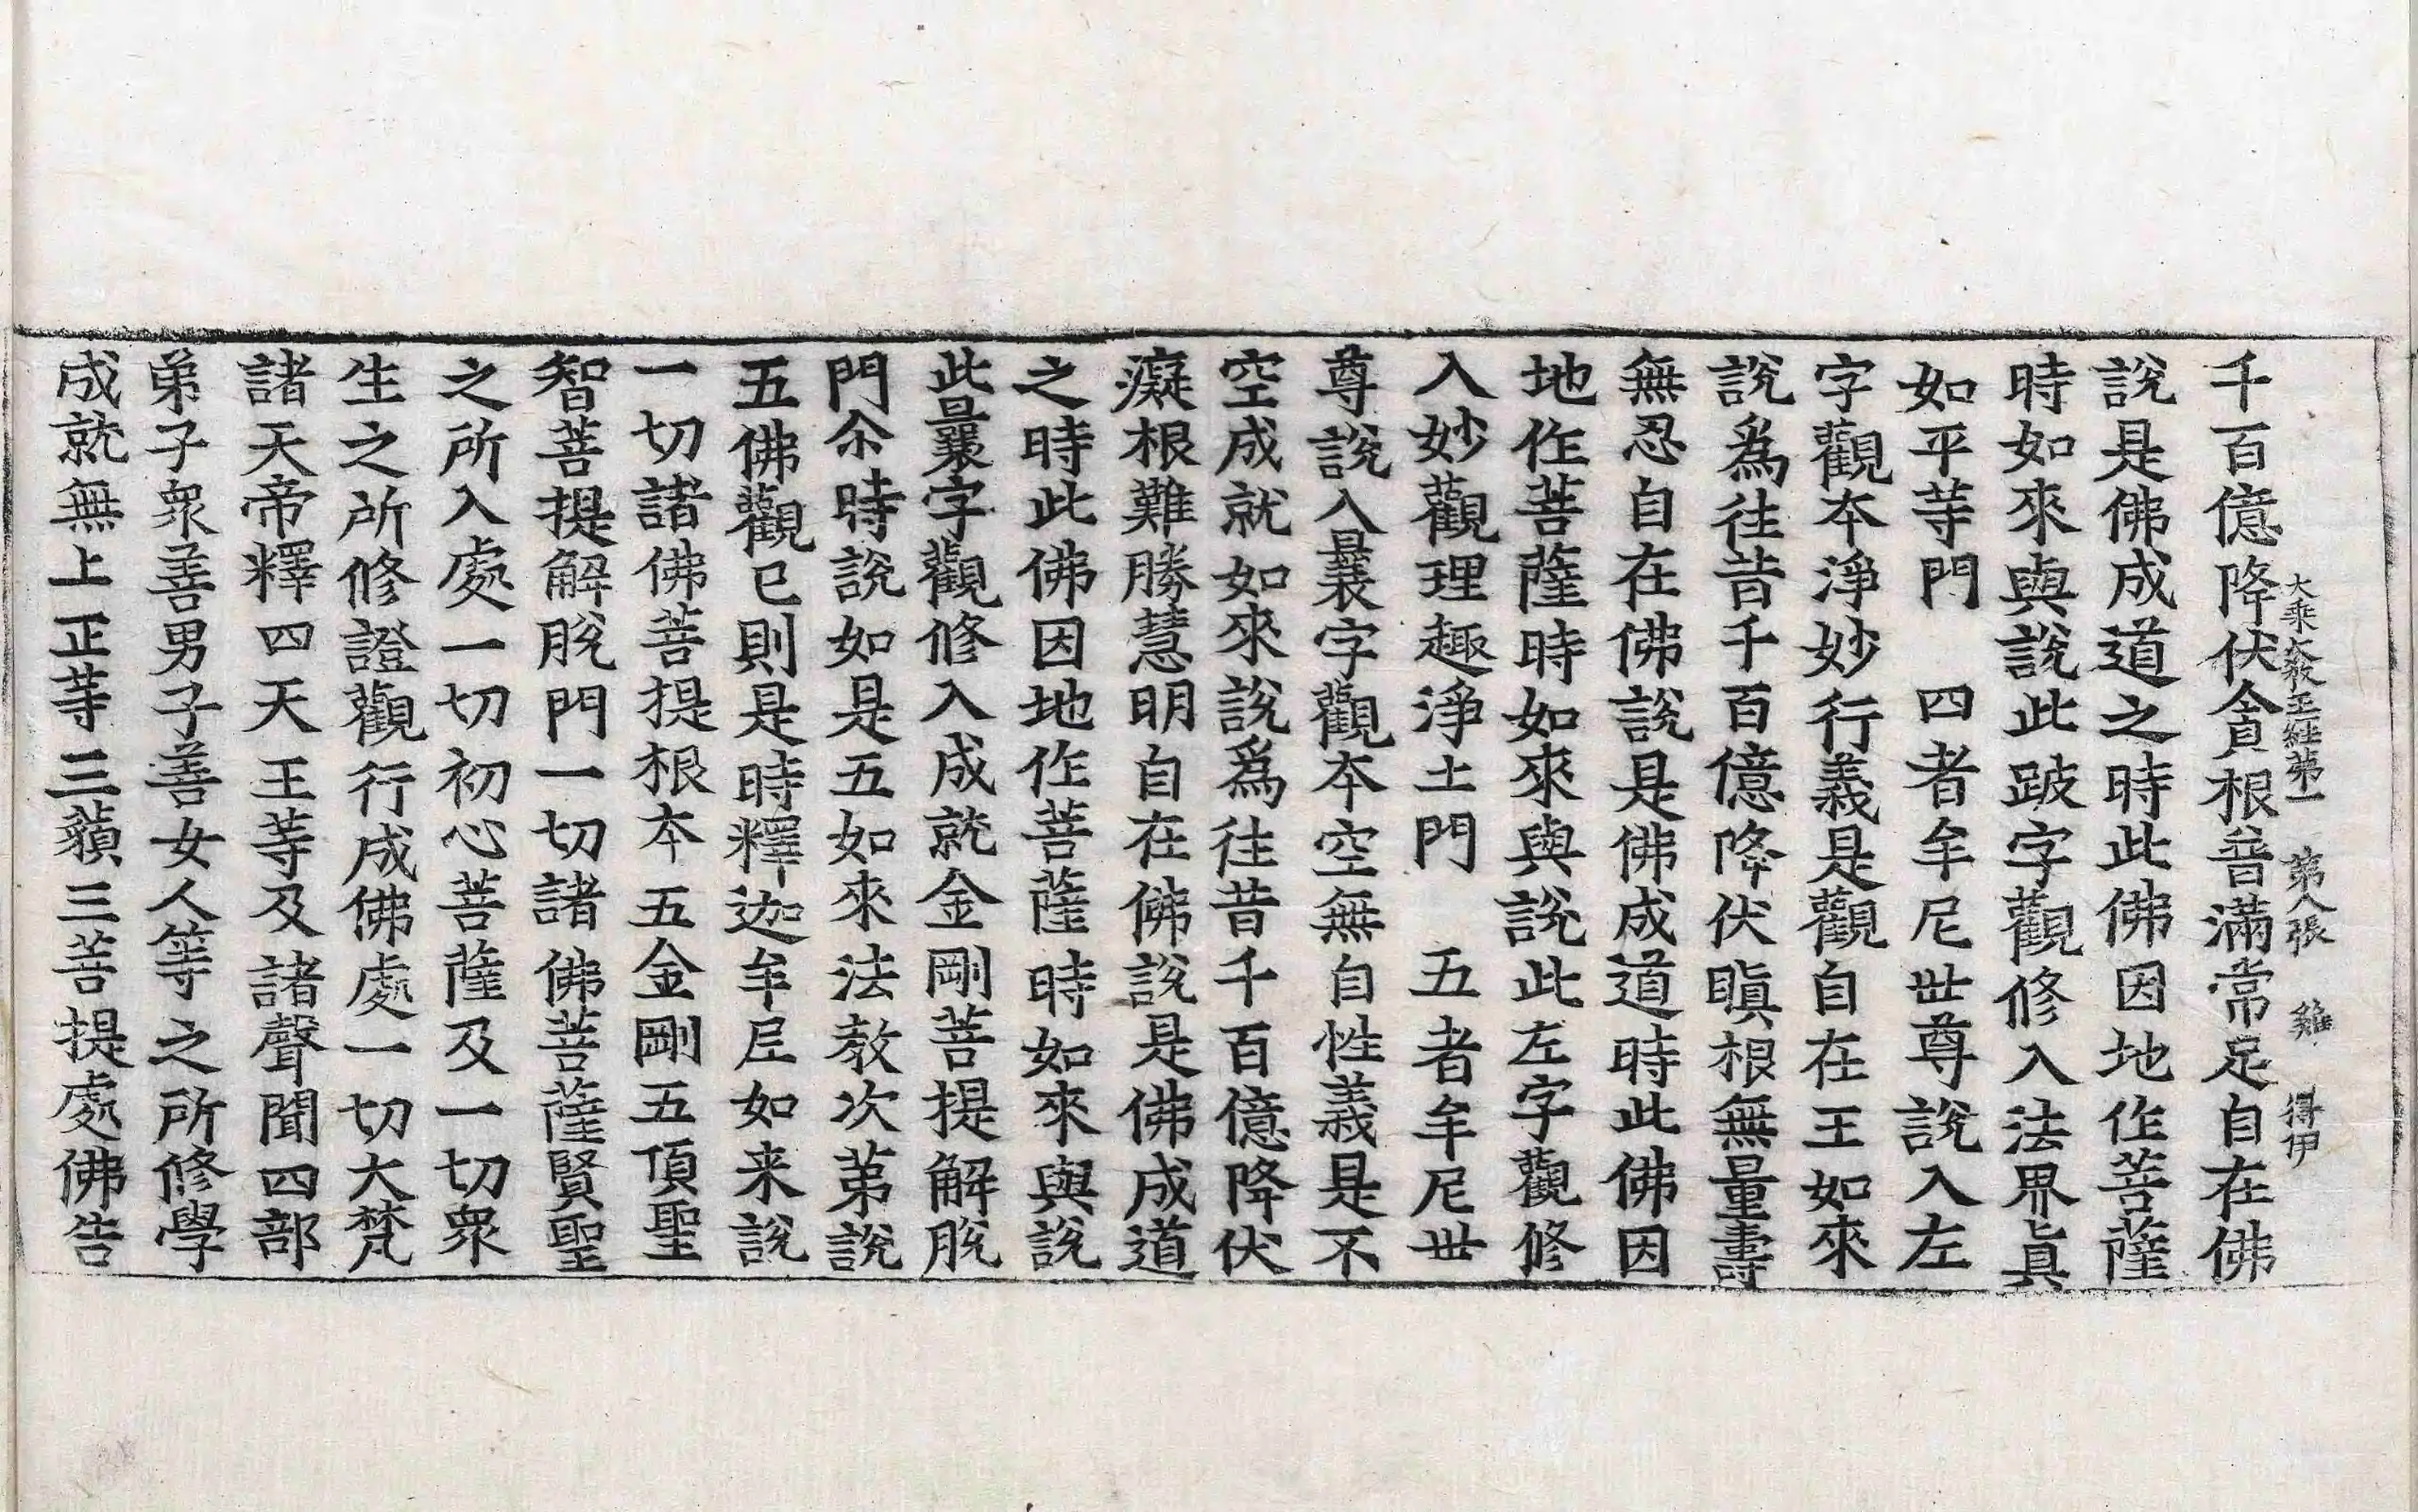 大乘大敎王經第一　第八張　雞　得伊
千百億降伏貪根普滿常足自在佛
說是佛成道之時此佛因地作菩薩
時如來與說此跛字觀修入法界眞
如平等門　四者牟尼世尊說入左
字觀本淨妙行義是觀自在王如來
說爲往昔千百億降伏瞋根無量壽
無忍自在佛說是佛成道時此佛因
地作菩薩時如來與說此左字觀修
入妙觀理趣淨土門　五者牟尼世
尊說入曩字觀本空無自性義是不
空成就如來說爲往昔千百億降伏
癡根難勝慧明自在佛說是佛成道
之時此佛因地作菩薩時如來與說
此曩字觀修入成就金剛菩提解脫
門尒時說如是五如來法教次第說
五佛觀已則是時釋迦牟尼如来說
一切諸佛菩提根本五金剛五頂聖
智菩提解脫門一切諸佛菩薩賢聖
之所入處一切初心菩薩及一切衆
生之所修證觀行成佛處一切大梵
諸天帝釋四天王等及諸聲聞四部
弟子衆善男子善女人等之所修學
成就無上正等三藐三菩提處佛告